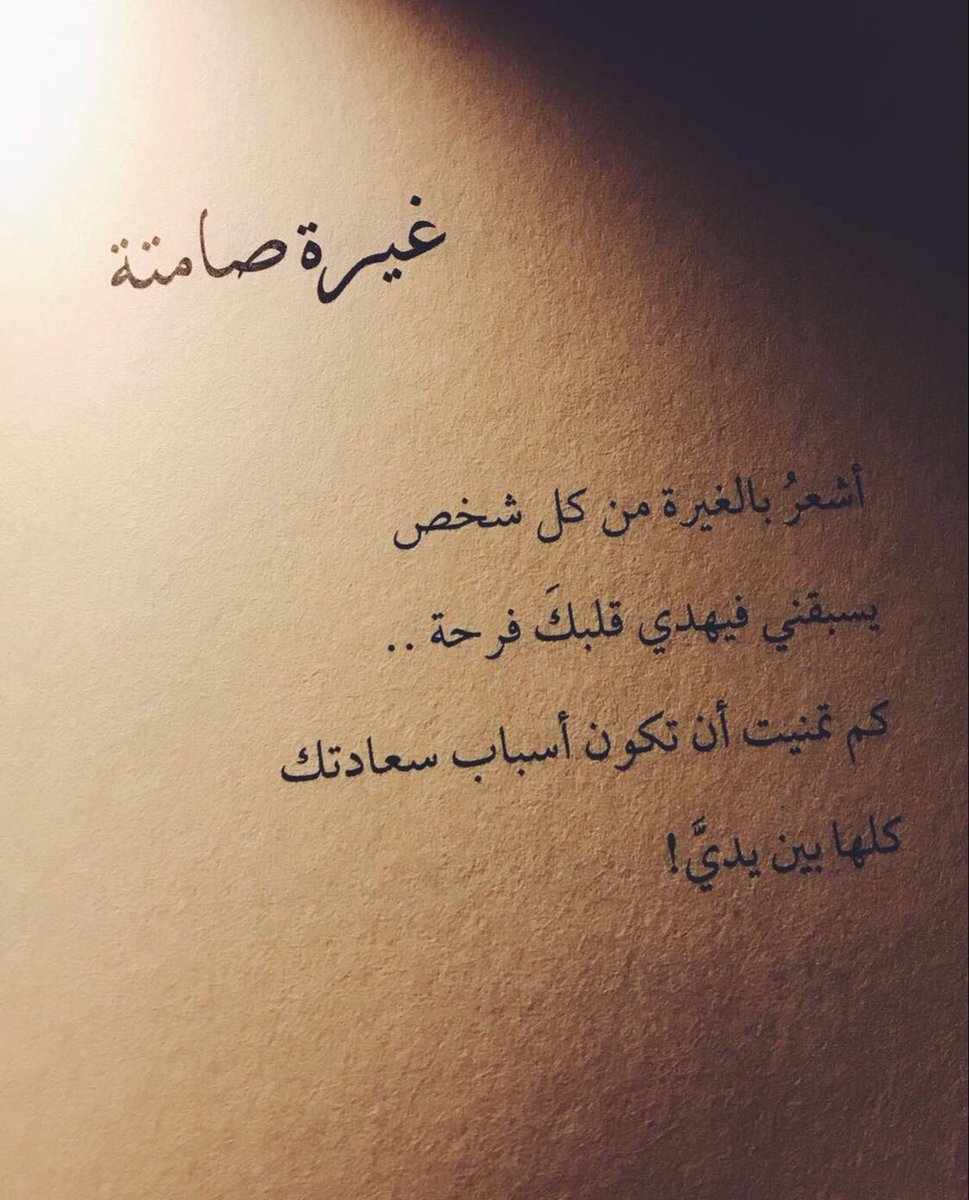 غيرة صامتة
أشعرُ بالغيرة من كل شخص
يسبقني فيهدي قلبكَ فرحة ..
كم تمنيت أن تكون أسباب سعادتك
كلها بين يديَّ!